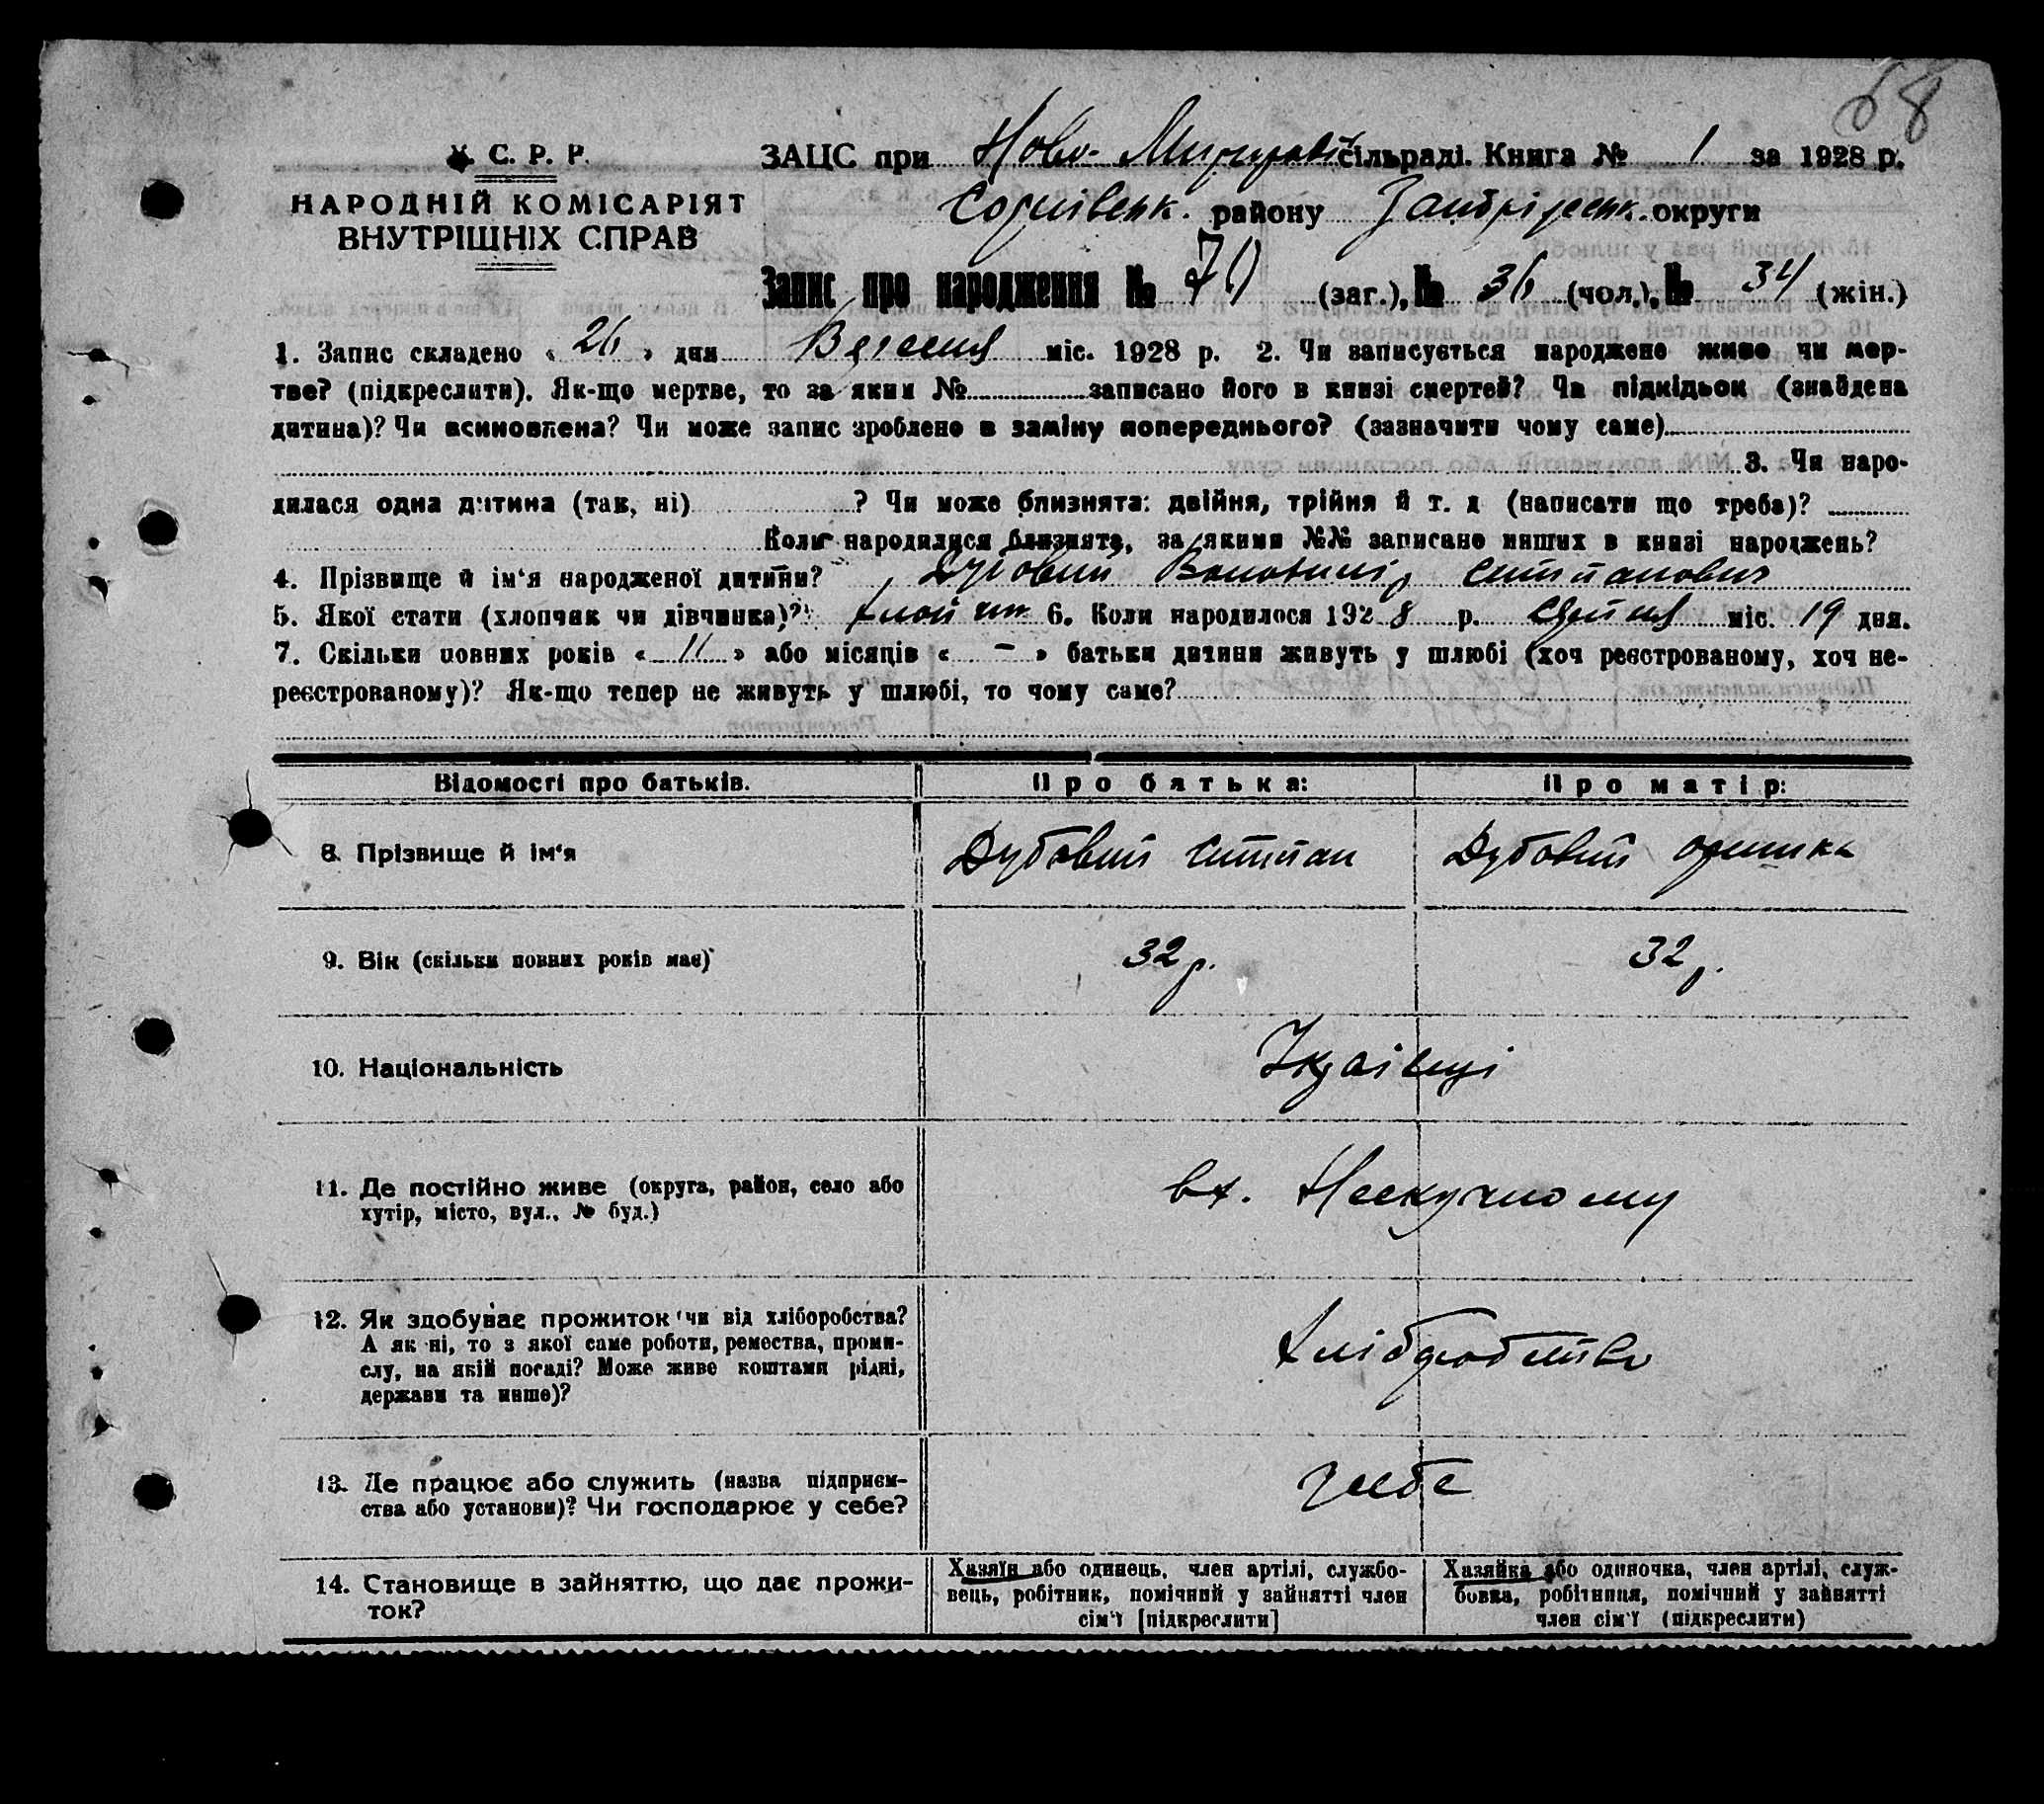 68
У. С. Р. Р.
НАРОДНІЙ КОМІСАРІЯТ
ВНУТРІШНІХ СПРАВ
ЗАЦС при Ново- сільраді. Книга № 1 за 1928 р.
району округи
Запис про народження № 70 (заг.), № 36 (чол.), № 34 (жін.)
1. Запис складено « 26 » дня Вересня міс. 1928 р. 2. Чи записується народжене живе чи мер-
тве? (підкреслити). Як-що мертве, то за яким № записано його в книзі смертей? Чи підкідьок (знайдена
дитина)? Чи всиновлена? Чи може запис зроблено в заміну попереднього? (зазначити чому саме)
3. Чи наро-
дилася одна дитина (так, ні) ? Чи може близнята: двійня, трійня й т. д (написати що треба)?
Коли народилися близнята, за якими №№ записано инших в книзі народжень?
4. Прізвище й ім‘я народженої дитини? Дубовий Степанович
5. Якої стати (хлопчик чи дівчинка)? 6. Коли народилося 1928 р. міс. 19 дня.
7. Скільки повних років « 11 » або місяців « - » батьки дитини живуть у шлюбі (хоч реєстрованому, хоч не-
реєстрованому)? Як-що тепер не живуть у шлюбі, то чому саме?
Відомості про батьків. Про батька: Про матір:
8. Прізвище й ім‘я Дубовий Степан Дубовий
9. Вік (скільки повних років має) 32 р. 32 р.
10. Національність Українці
11. Де постійно живе (округа, район, село або
хутір, місто, вул., № буд.) вх. Нескучному
12. Як здобуває прожиток чи від хліборобства?
А як ні, то з якої саме роботи, ремества, проми-
слу, на якій посаді? Може живе коштами рідні,
держави та инше)? Хліборобство
13. Де працює або служить (назва підприєм-
ства або установи)? Чи господарює у себе? У себе
14. Становище в зайняттю, що дає прожи-
ток?
Хазяїн або одинець, член артілі, службо-
вець, робітник, помічний у зайнятті член
сім‘ї [підкреслити]
Хазяйка або одиночка, член артілі, служ-
бовка, робітниця, помічний у зайнятті
член сім‘ї (підкреслити)